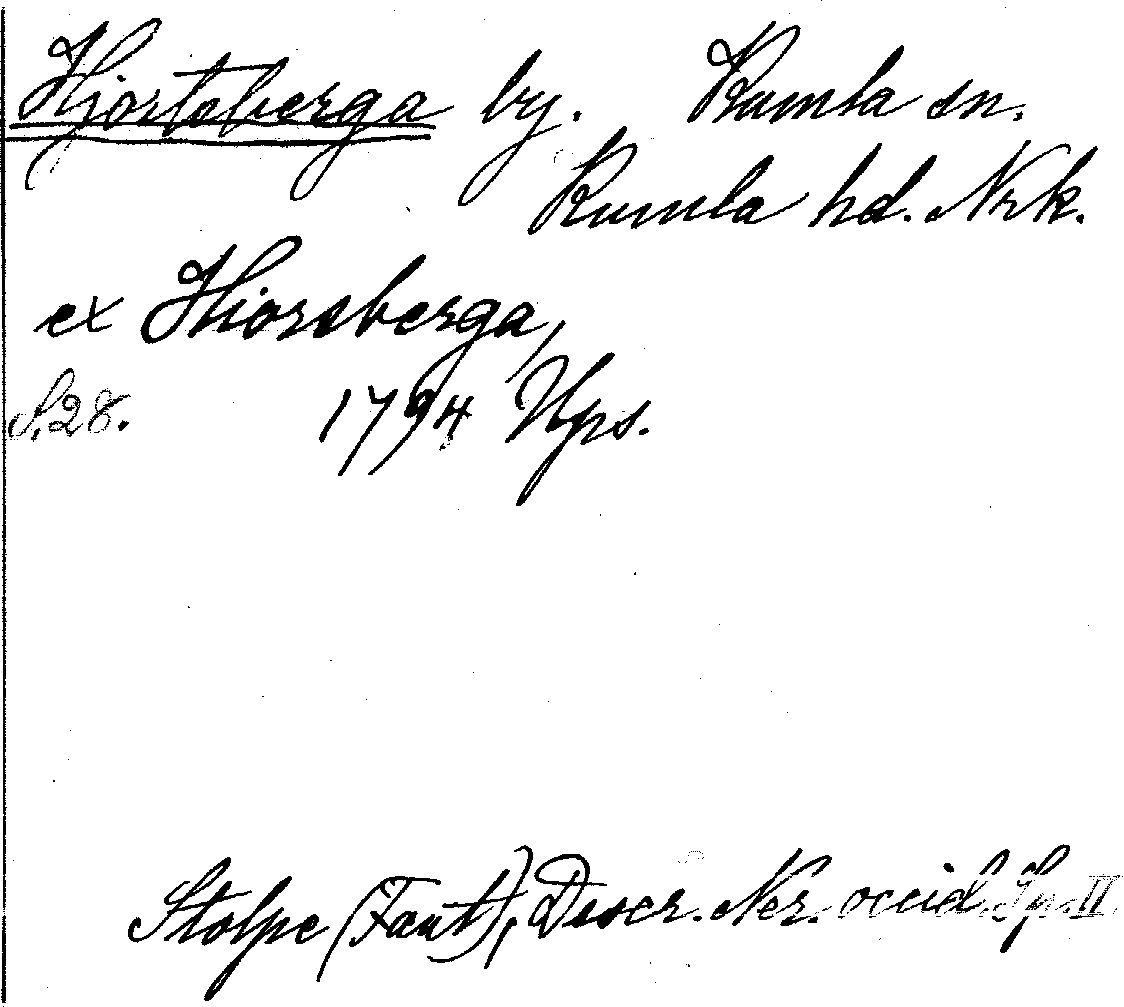 Hjortsberga by. Kumla sn.
Kumla hd. Nrk.
ex Hiorsberga,
S. 28. 1794 Ups.
Stolpe (Fant), Descr. Ner. occid. Sp. II.